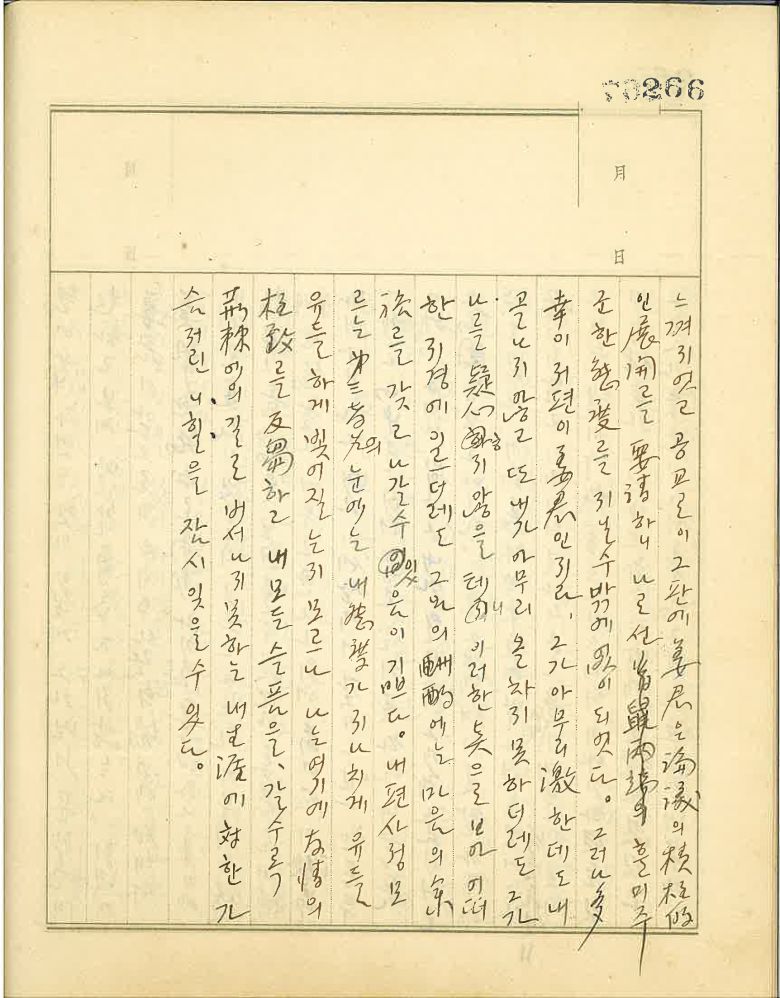 70266
月
日
느껴지엇고 공교로이 그 판에 姜君은 論議의 積極的
인 展開를 要請하니 나로선 首鼠兩端의 흘미주
준한 態度를 지닐수 밖게 없이 되엿다。그러나 多
幸이 저편이 姜君인지라、그가 아무리 激한데도 내
골나지 않고 또 내가 아무리 올차지 못하더레도 그가
나를 疑心하지 않을 테니 이러한 点으로 보아 어떠
한 지경에 일으더레도 그와의 酬酌에는 마음의 余
裕를 갖고 나갈수 있음이 기쁘다。내 편 사정 모
르는 第三者의 눈에는 내 態度가 지나치게 유들
유들하게 빛어질는지 모르나 나는 여기에 友情의
極致를 反芻하고 내 모든 슬픔을、갈수록
荊棘에의 길로 버서나지 못하는 내 生涯에 対한 가
슴저린 니힐을 잠시 잊을 수 있다。